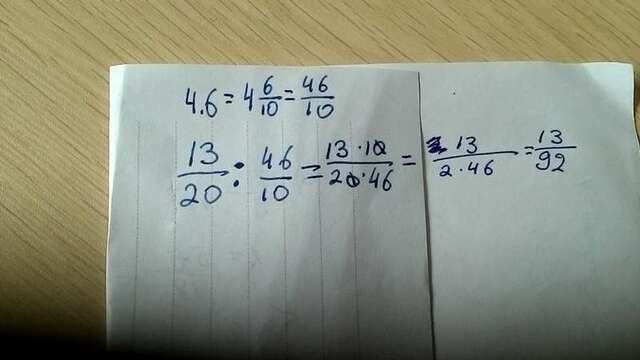 4.6 = 4 6/10 = 46/10
13/20 : 46/10 = 13·10/20·46 = 13/2·46 = 13/92